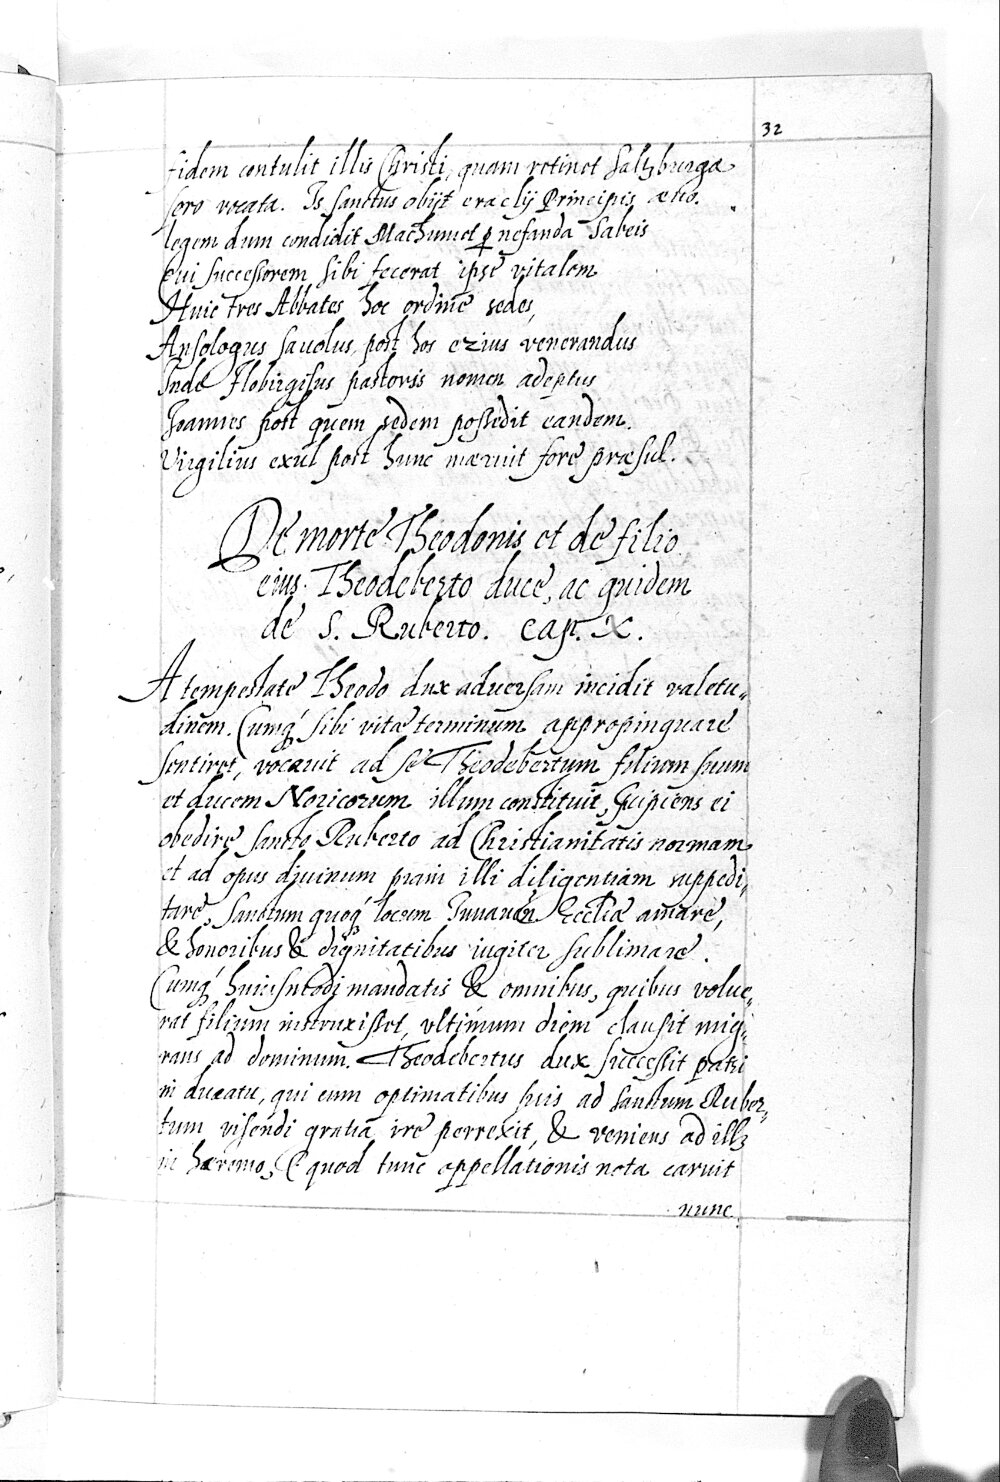 32
fidem contulit illis Christi, quam retinet Saltzburga
sero vocata. Is sanctus obijt eraclij Principis æuo.
legem dum condidit Machumet p nefanda Sabeis
cui successorem sibi fecerat ipse vitalem
Huic tres Abbates hoc ordine sedes,
Ansologus savolus, post hos ezius venerandus
Inde Flobirgisus pastoris nomen adeptus
Joannes post quem sedem possedit eandem.
Virgilius exul post hunc meruit fore præsul.
De morte Theodonis et de filio
eius Theodeberto duce, ac quidem
de S. Ruberto. cap. X.
A tempestate Theodo dux aduersam incidit valetu„
dinem. Cumq́ sibi vitæ terminum appropinquare
sentiret, vocauit ad se Theodebertum filium suum
et ducem Noricorum illum constituit, p̃cipiens ei
obedire sancto Ruberto ad Christianitatis normam
et ad opus diuinum piam illi diligentiam suppedi„
tare, sanctum quoq́ locum Juuauen̄ Ecclīæ amare,
& honoribus & dignitatibus iugiter sublimare.
Cumq́ huiusmodi mandatis & omnibus, quibus volue„
rat filium instruxisset, vltimum diem clausit mig„
rans ad dominum. Theodebertus dux successit patri
in ducatu, qui cum optimatibus suis ad sanctum Ruber„
tum visendi gratia ire perrexit, & veniens ad illū
in hæremo, & quod tunc appellationis nota caruit
nunc